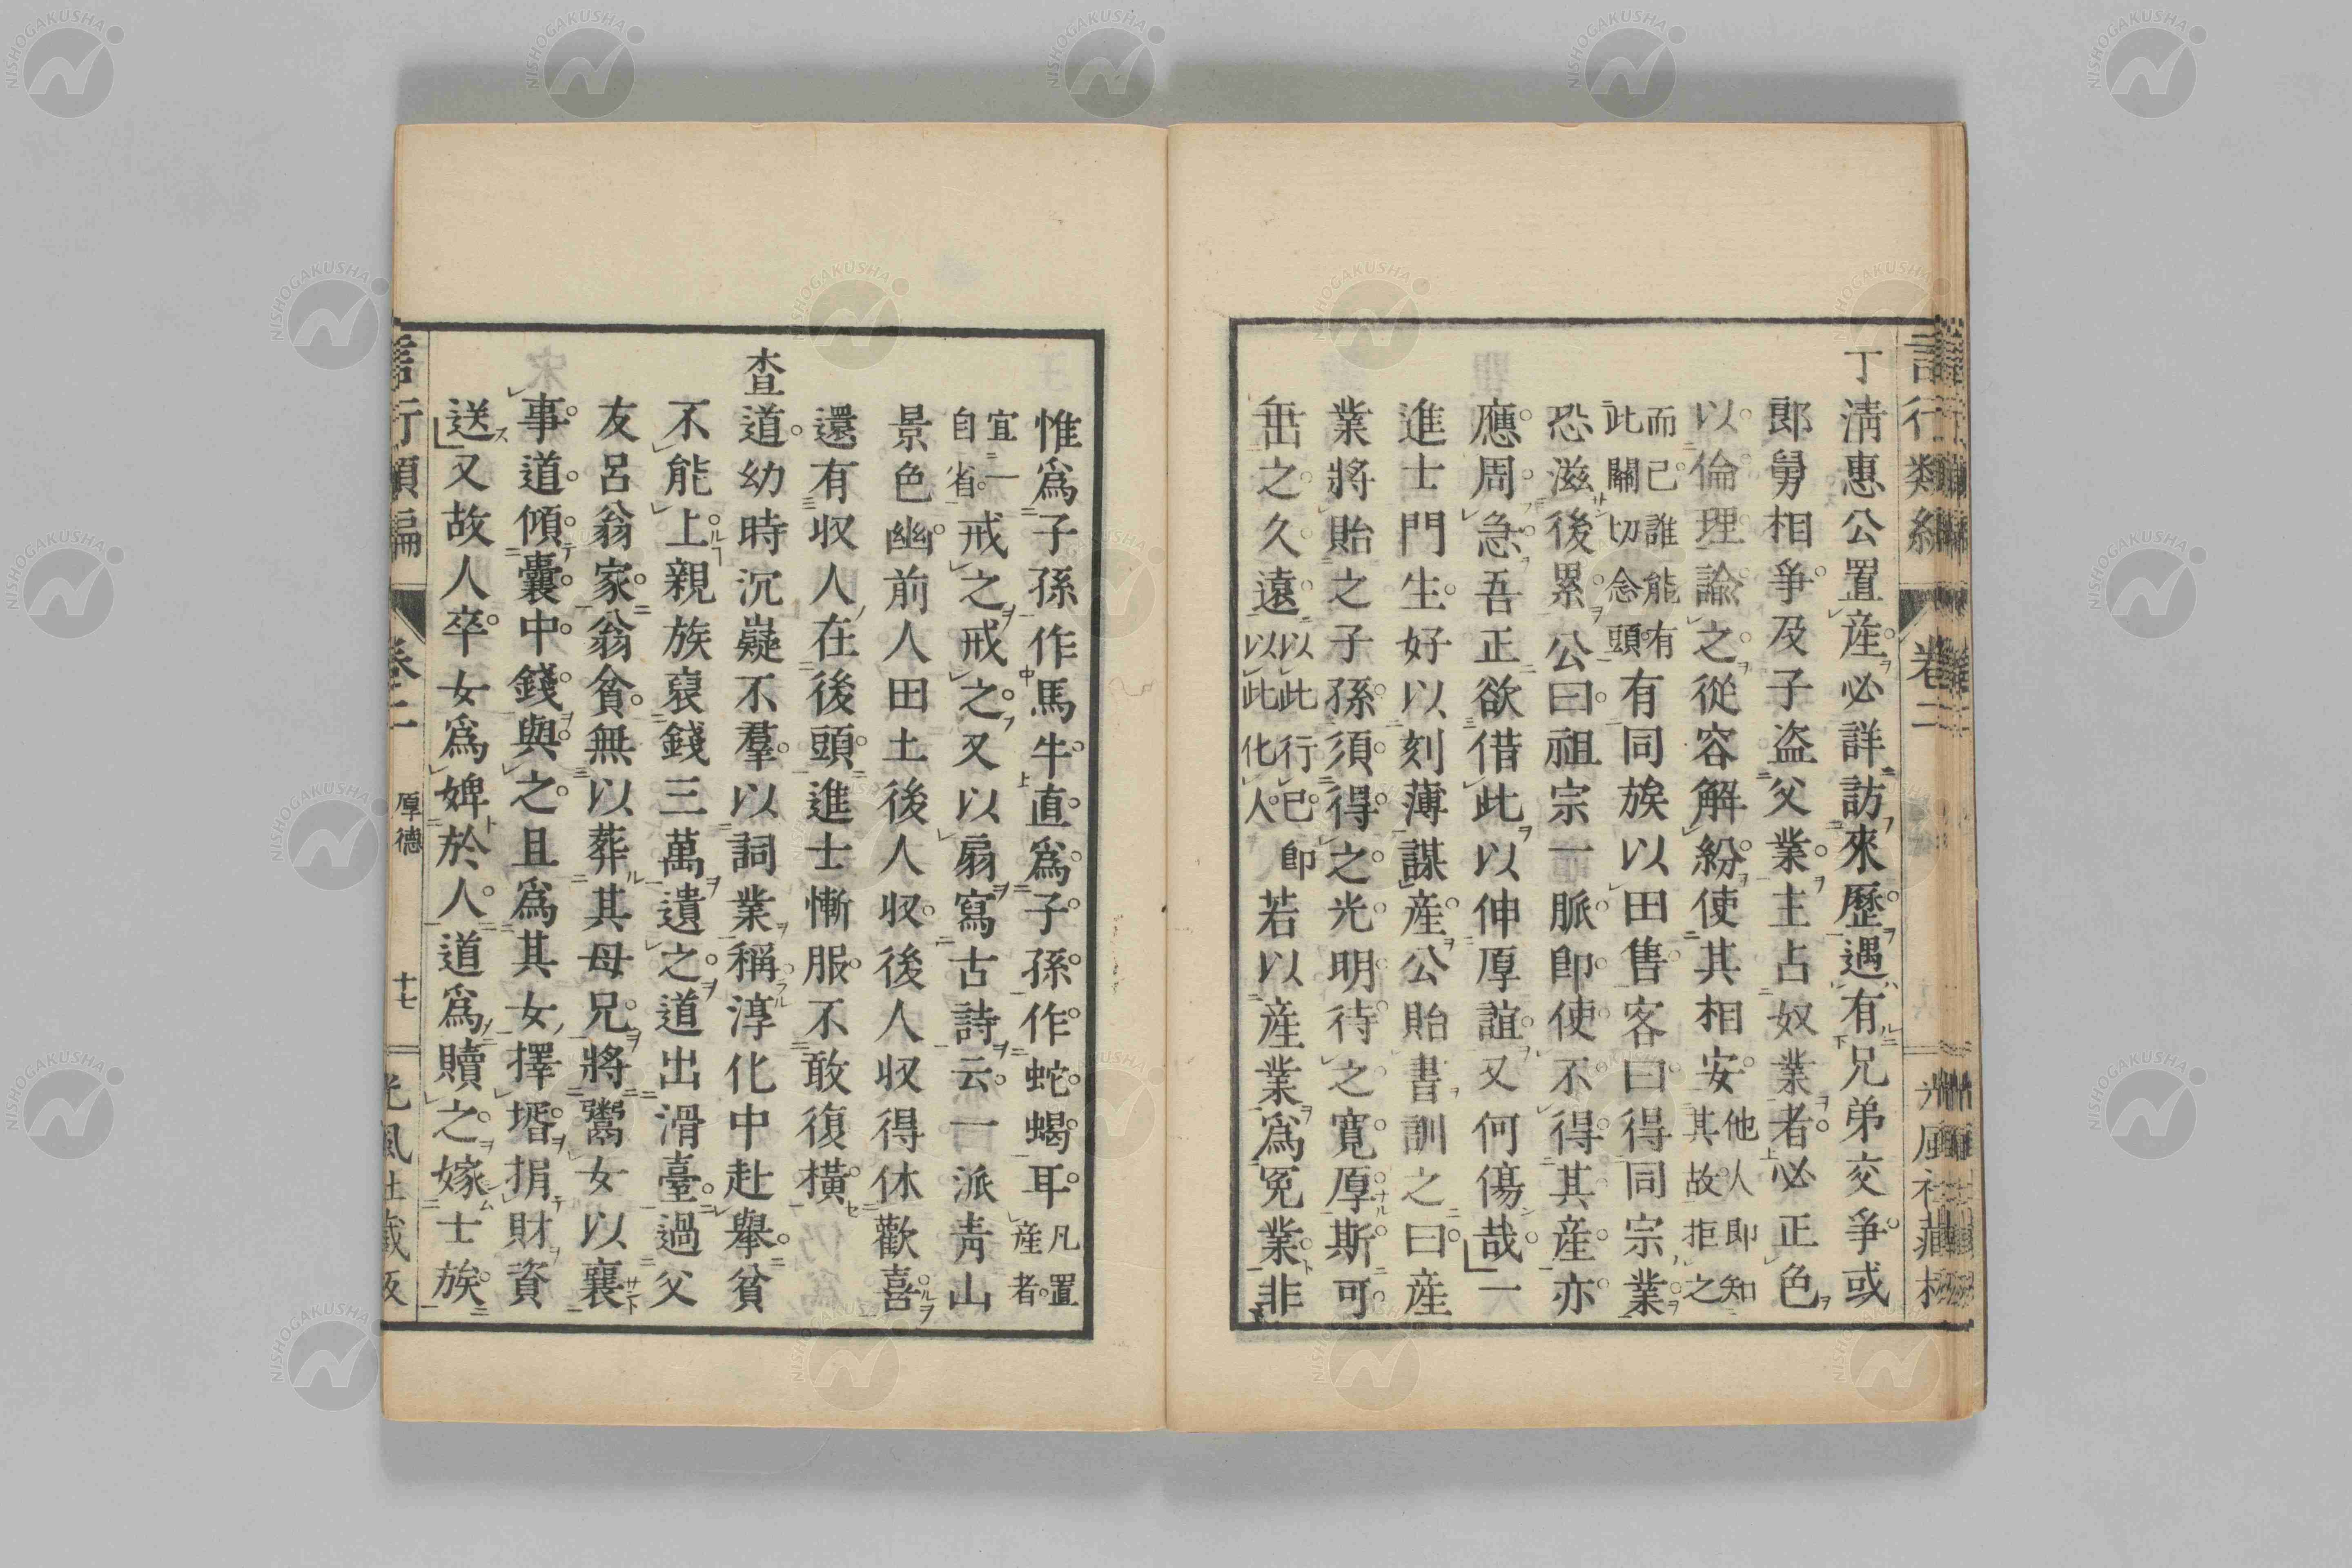 言行類編 卷二 光風社藏板
丁淸惠公置產必詳訪來歷遇有兄弟交爭或
郎舅相爭及子盗父業主占奴業者必正色
以倫理諭之從容解紛使其相安他人卽知其故拒之
而已誰能有此關切念頭有同族以田售客曰得同宗業
恐滋後累公曰祖宗一脈卽使不得其產亦
應周急吾正欲借此以伸厚誼又何傷哉一
進士門生好以刻薄謀產公貽書訓之曰產
業將貽之子孫須得之光明待之寬厚斯可
垂之久遠以此行己卽以此化人若以產業爲冤業非
惟爲子孫作馬牛直爲子孫作蛇蝎耳凡置產者
宜一自省戒之戒之又以扇寫古詩云一派靑山
景色幽前人田土後人收後人收得休歡喜
還有収人在後頭進士慚服不敢復橫
查道幼時沉嶷不羣以詞業稱淳化中赴擧貧
不能上親族裒錢三萬遺之道出滑臺過父
友呂翁家翁貧無以葬其母兄將鬻女以襄
事道傾囊中錢與之且爲其女擇壻捐財資
送又故人卒女爲婢於人道爲贖之嫁士族
言行類編 卷二 厚德 十七 光風社藏板